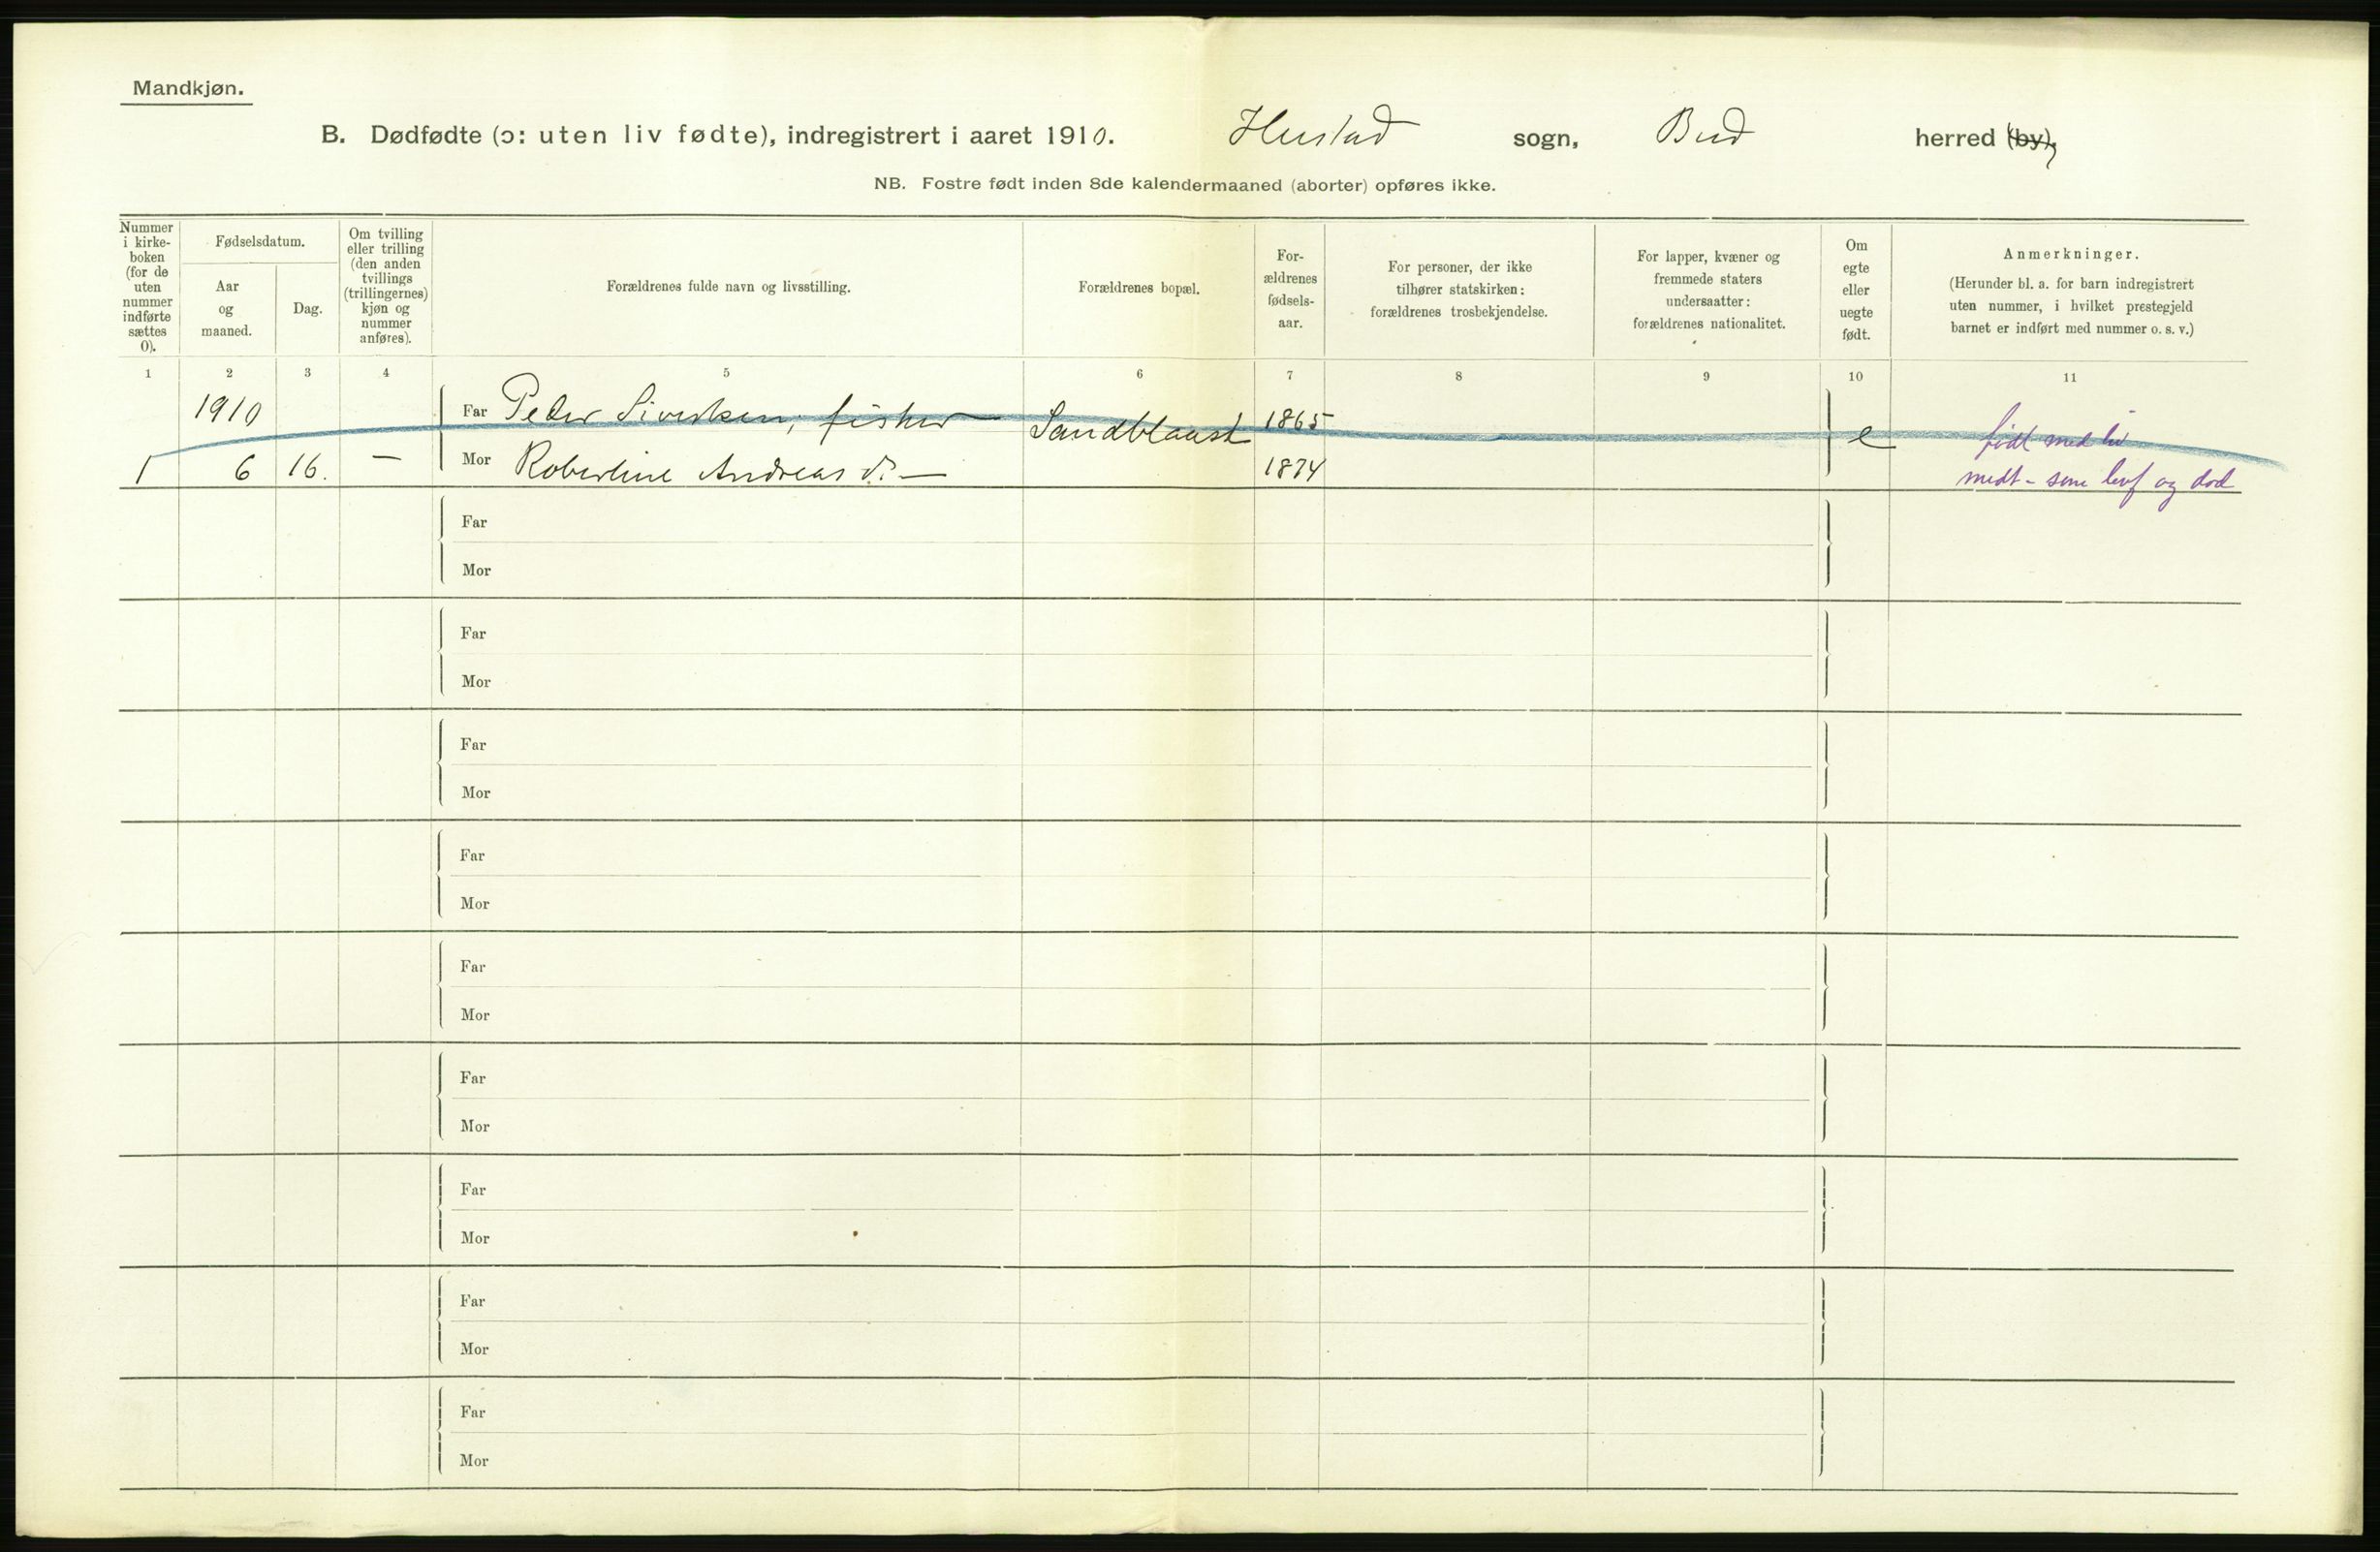 Mandkjøn.
B. Dødfødte (ɔ: uten liv fødte), indregistrert i aaret 1910. Hustad sogn, Bud herred (by),
NB. Fostre født inden 8de kalendermaaned (aborter) opføres ikke.
Nummer
i kirke-
boken
(for de
uten
nummer
indførte
sættes
0).
Fødselsdatum.
Aar
og
maaned.
Dag.
Om tvilling
eller trilling
(den anden
tvillings
(trillingernes)
kjøn og
nummer
anføres).
Forældrenes fulde navn og livsstilling.
Forældrenes bopæl.
For-
ældrenes
fødsels-
aar.
For personer, der ikke
tilhører statskirken:
forældrenes trosbekjendelse.
For lapper, kvæner og
fremmede staters
undersaatter:
forældrenes nationalitet.
Om
egte
eller
uegte
født.
Anmerkninger.
(Herunder bl. a. for barn indregistrert
uten nummer, i hvilket prestegjeld
barnet er indført med nummer o. s. v.)
1 2 3 4 5 6 7 8 9 10 11
1910 Far Peder Sivertsen, fisker Sandblaast 1865 e født med liv
1 6 16. — Mor Robertine Andreasd. — 1874 medt - som lev og død
Far
Mor
Far
Mor
Far
Mor
Far
Mor
Far
Mor
Far
Mor
Far
Mor
Far
Mor
Far
Mor